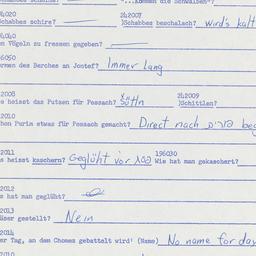 "...kommen die Schwalben"?
34020 242007
Schabbes schire? Schabbes beschalach? wird's kalt
34040
en Vögeln zu fressen gegeben?
36050
ermen des Berches an Jontef? Immer lang
2008 242009
e heisst das Putzen für Pessach? Schittlen?
2010
hon Purim etwas für Pessach gemacht? Direct nach פורים beg
2011 196030
s heisst kaschern? Geglüht vor פסח Wie hat man gekaschert?
2012
s hat man geglüht?
2013
äser gestellt? Nein
2014
er Tag, an dem Chomez gebattelt wird? (Name) No name for day